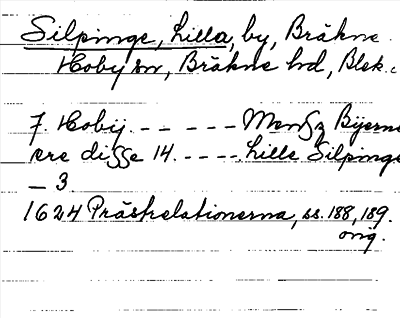 Silpinge, Lilla, by, Bräkne
Hoby sn, Bräkne hd, Blek.
7. Hobij. - - - - - - Mengz Bijerns
ere disse 14. - - - - Lille Silpinge
- 3.
1624 Prästrelationerna, ss. 188, 189.
orig.